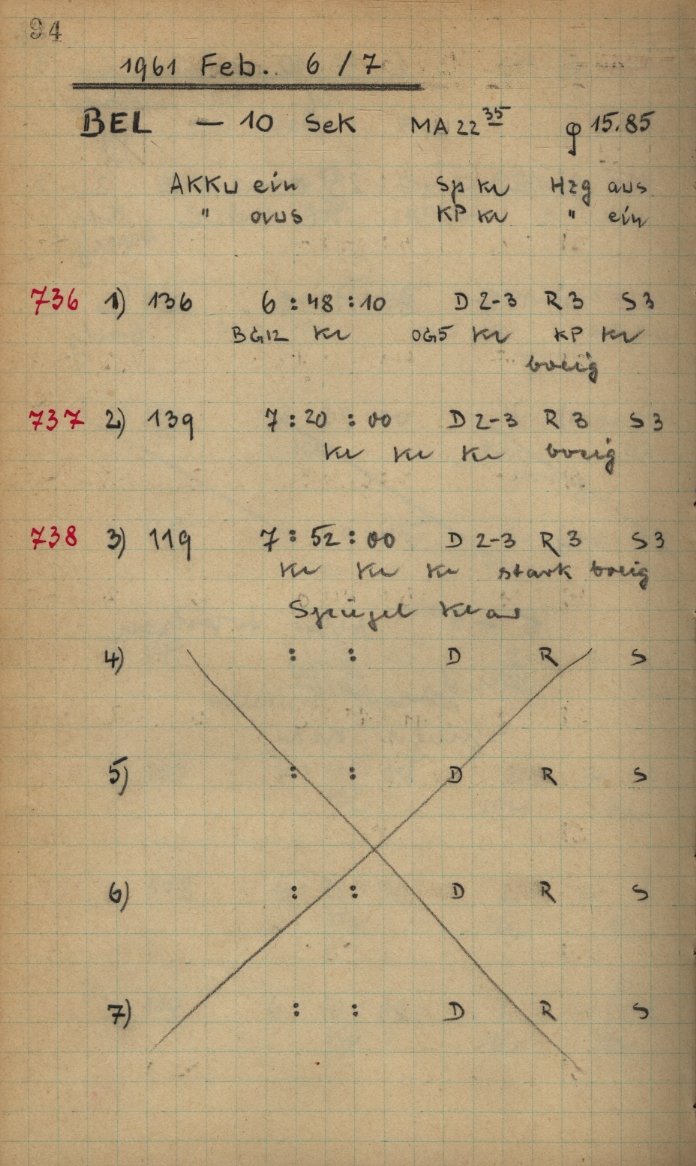 94
1961 Feb. 6/7
BEL — 10 Sek MA 22 35 φ 15.85
AKKu ein Sp kr Hzg aus
" aus KP kr " ein
736 1) 136 6 : 48 : 10 D 2-3 R 3 S 3
BG12 kr OG5 kr KP kr
boeig
737 2) 139 7 : 20 : 00 D 2-3 R 3 S 3
kr kr kr boeig
738 3) 119 7 : 52 : 00 D 2-3 R 3 S 3
kr kr kr stark boeig
Spiegel klar
4) : : D R S
5) : : D R S
6) : : D R S
7) : : D R S